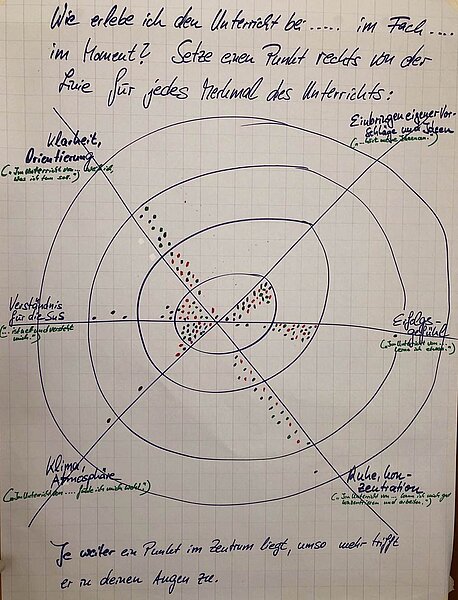 Wie erlebe ich den Unterricht bei ..... im Fach ....
im Moment? Setze einen Punkt rechts von der
Linie für jedes Merkmal des Unterrichts:
Einbringen eigener Vor-
schläge und Ideen
Klarheit,
Orientierung
("Im Unterricht von ... weiß ich,
was ich tun soll.")
Verständnis
für die SuS
Erfolgs-
gefühl
("Im Unterricht von ...
lerne ich etwas.")
Klima,
Atmosphäre
("Im Unterricht von .... fühle ich mich wohl.")
Ruhe, Kon-
zentration
("Im Unterricht von ... kann ich mich gut
konzentrieren und arbeiten.")
Je weiter ein Punkt im Zentrum liegt, umso mehr trifft
er in deinen Augen zu.